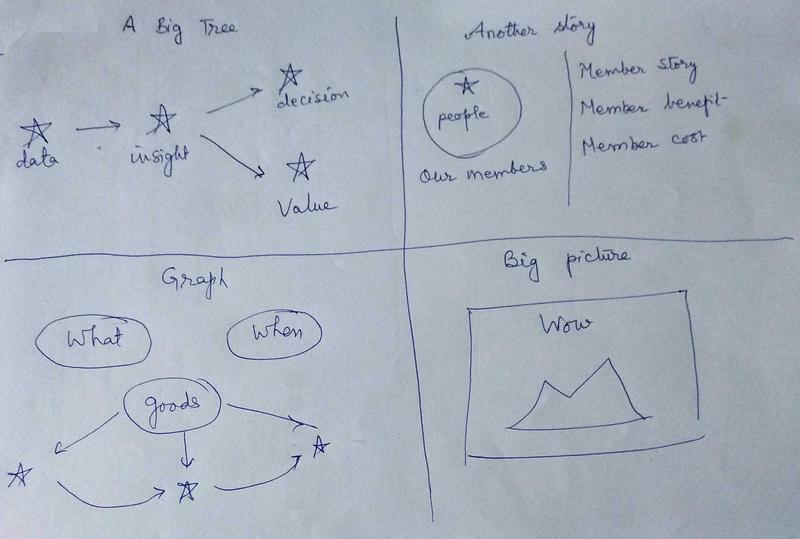 A Big Tree
data
insight
decision
Value
Another story
people
Our members
Member story
Member benefit
Member cost
Graph
What
When
goods
Big picture
Wow